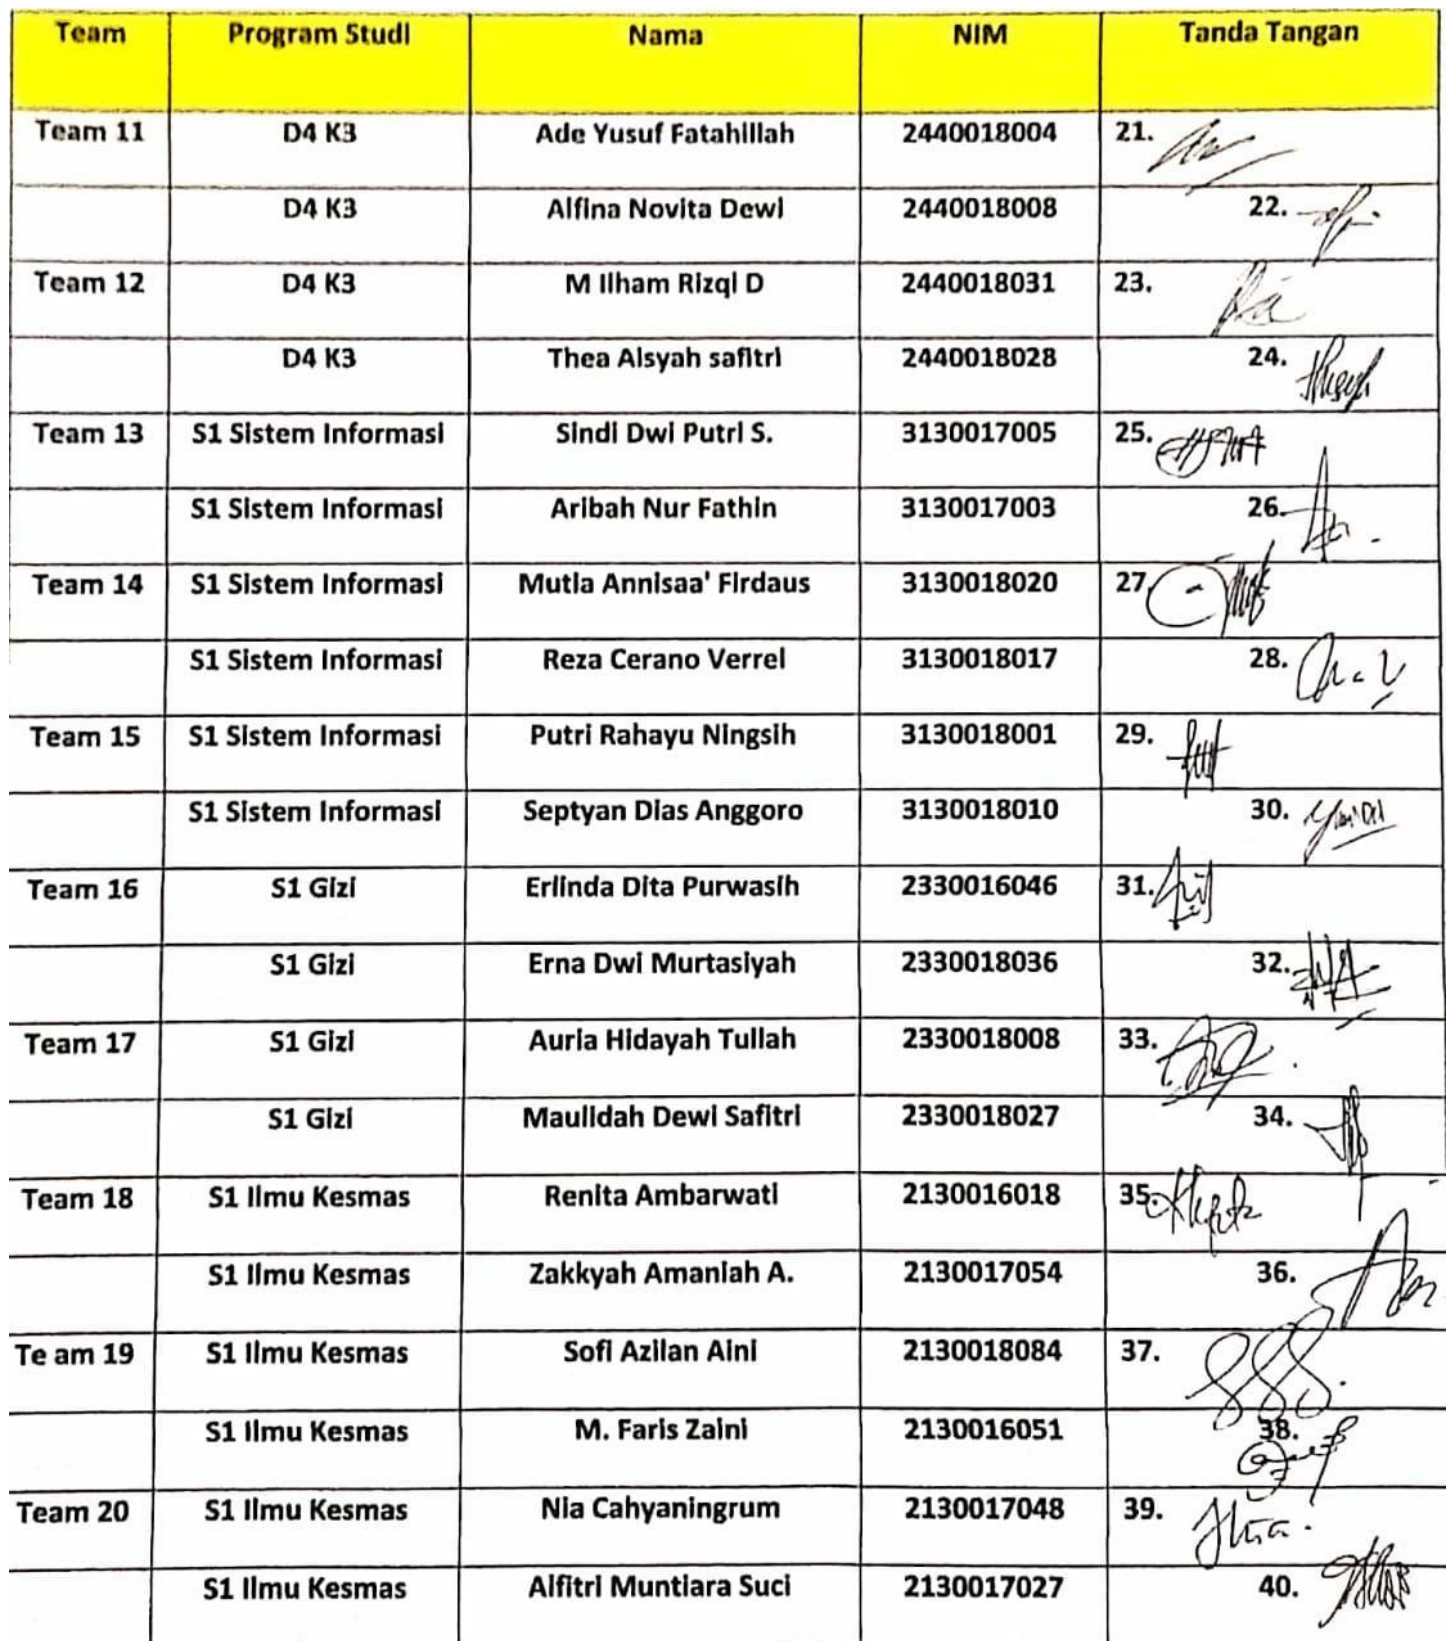 Team Program Studi Nama NIM Tanda Tangan
Team 11 D4 K3 Ade Yusuf Fatahillah 2440018004 21.
D4 K3 Alfina Novita Dewi 2440018008 22.
Team 12 D4 K3 M Ilham Rizqi D 2440018031 23.
D4 K3 Thea Aisyah safitri 2440018028 24.
Team 13 S1 Sistem Informasi Sindi Dwi Putri S. 3130017005 25.
S1 Sistem Informasi Aribah Nur Fathin 3130017003 26.
Team 14 S1 Sistem Informasi Mutia Annisaa' Firdaus 3130018020 27.
S1 Sistem Informasi Reza Cerano Verrel 3130018017 28.
Team 15 S1 Sistem Informasi Putri Rahayu Ningsih 3130018001 29.
S1 Sistem Informasi Septyan Dias Anggoro 3130018010 30.
Team 16 S1 Gizi Erlinda Dita Purwasih 2330016046 31.
S1 Gizi Erna Dwi Murtasiyah 2330018036 32.
Team 17 S1 Gizi Auria Hidayah Tullah 2330018008 33.
S1 Gizi Maulidah Dewi Safitri 2330018027 34.
Team 18 S1 Ilmu Kesmas Renita Ambarwati 2130016018 35.
S1 Ilmu Kesmas Zakkyah Amaniah A. 2130017054 36.
Te am 19 S1 Ilmu Kesmas Sofi Azilan Aini 2130018084 37.
S1 Ilmu Kesmas M. Faris Zaini 2130016051 38.
Team 20 S1 Ilmu Kesmas Nia Cahyaningrum 2130017048 39.
S1 Ilmu Kesmas Alfitri Muntiara Suci 2130017027 40.